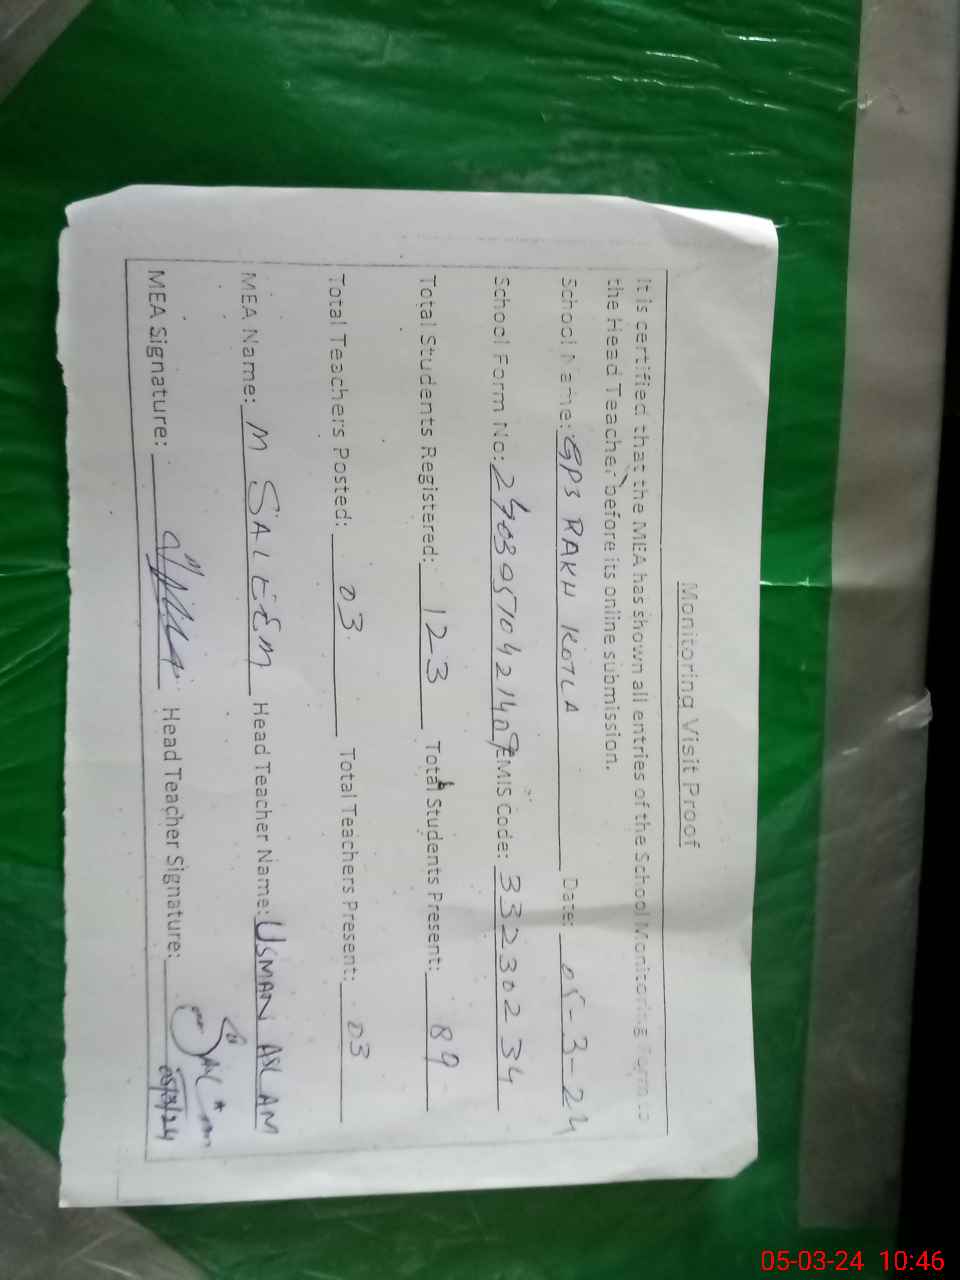 Monitoring Visit Proof
It is certified that the MEA has shown all entries of the School Monitoring Form to
the Head Teacher before its online submission.
School Name: GPS RAKH KOTLA Date: 05-3-24
School Form No: EMIS Code: 33230234
Total Students Registered: 123 Total Students Present: 89
Total Teachers Posted: 03 Total Teachers Present: 03
MEA Name: M SALEEM Head Teacher Name: USMAN ASLAM
MEA Signature: Head Teacher Signature:
05/3/24
05-03-24 10:46